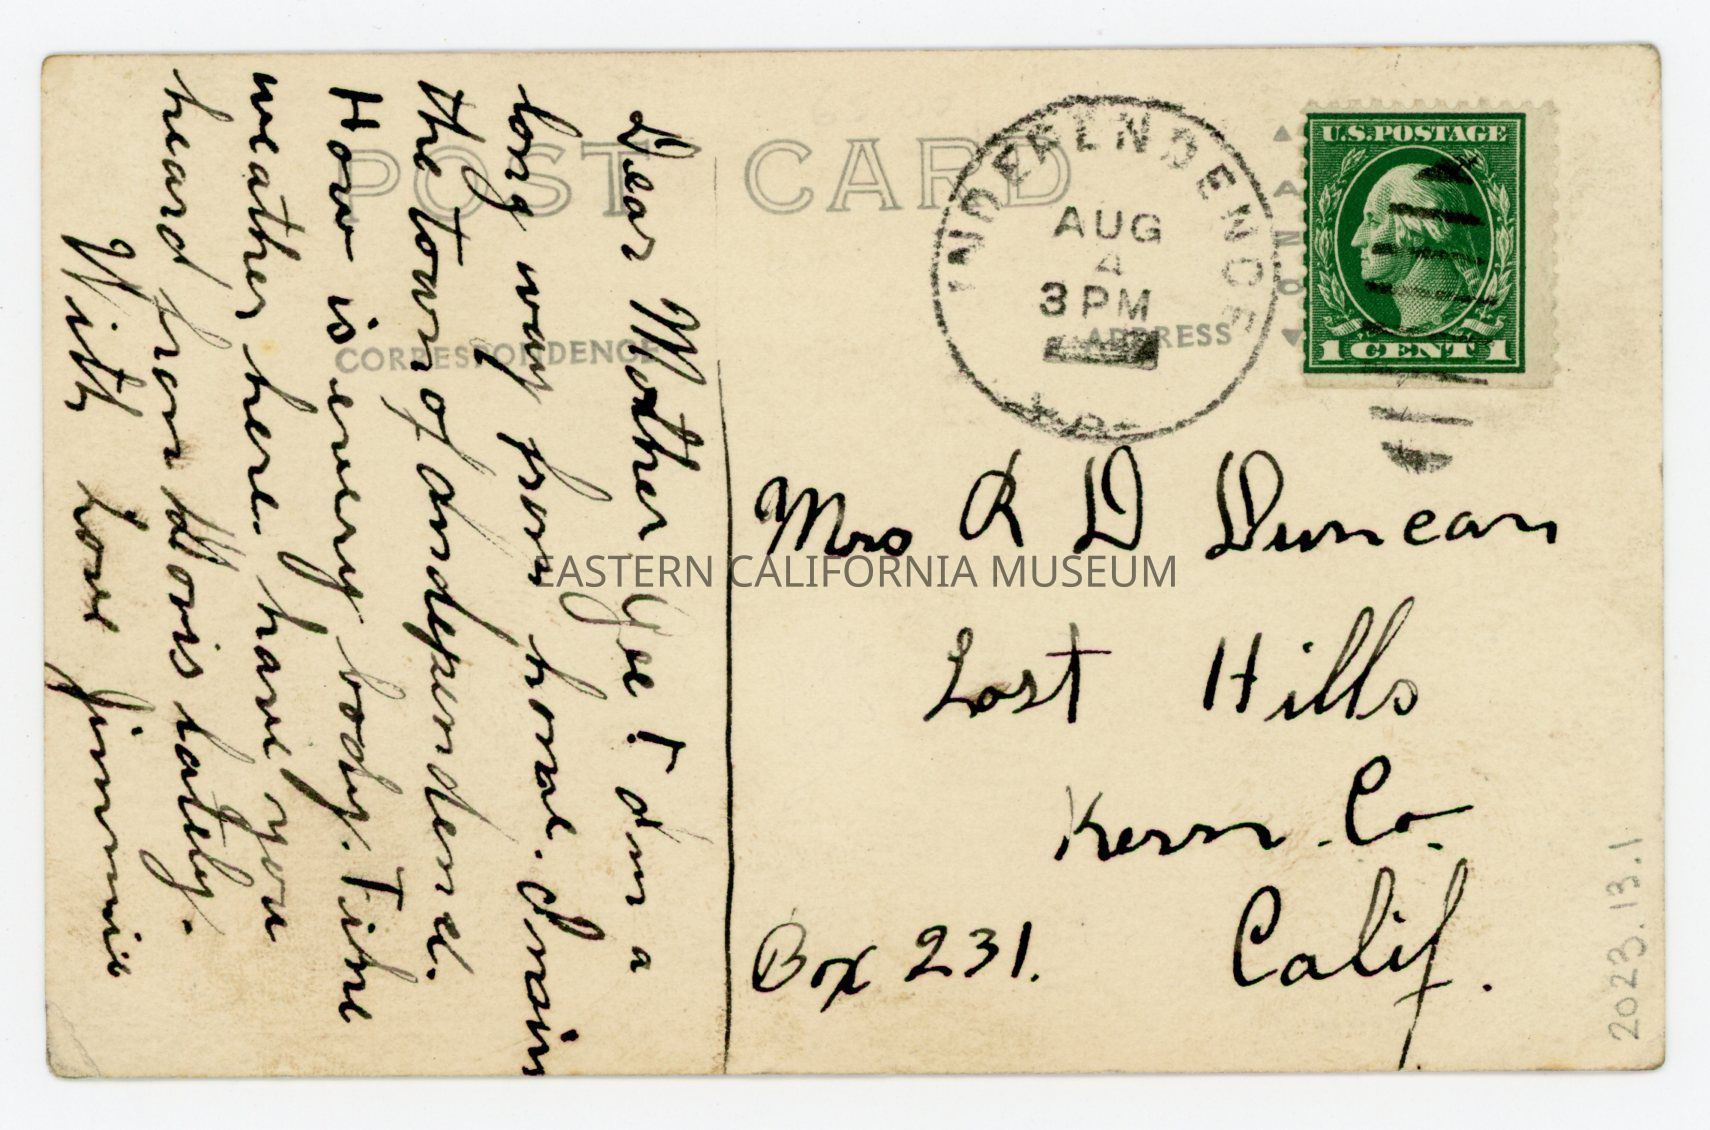 POST CARD
CORRESPONDENCE
ADDRESS
INDEPENDENCE
AUG
4
3 PM
U.S. POSTAGE
1 CENT 1
Dear Mother Gee I am a
long way from home. I main
the town of Independence.
How is every body. Fine
weather here. have you
heard from Doris lately.
With Love Jimmie
Mrs R D Duncan
Lost Hills
Kern. Co.
Calif.
Box 231.
EASTERN CALIFORNIA MUSEUM
2023.13.1